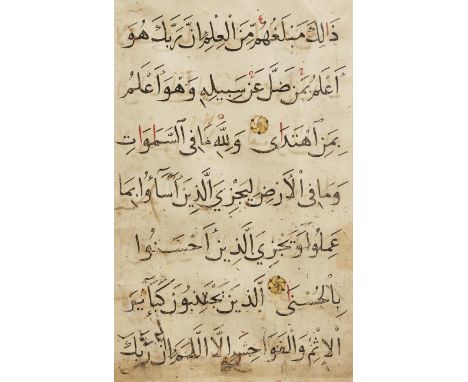 ذَالِكَ مَبْلَغُهُم مِّنَ الْعِلْمِ إِنَّ رَبَّكَ هُوَ
أَعْلَمُ بِمَن ضَلَّ عَن سَبِيلِهِ وَهُوَ أَعْلَمُ
بِمَنِ اهْتَدَى وَلِلَّهِ مَا فِي السَّمَاوَاتِ
وَمَا فِي الْأَرْضِ لِيَجْزِيَ الَّذِينَ أَسَاءُوا بِمَا
عَمِلُوا وَيَجْزِيَ الَّذِينَ أَحْسَنُوا
بِالْحُسْنَى الَّذِينَ يَجْتَنِبُونَ كَبَائِرَ
الْإِثْمِ وَالْفَوَاحِشَ إِلَّا اللَّمَمَ إِنَّ رَبَّكَ